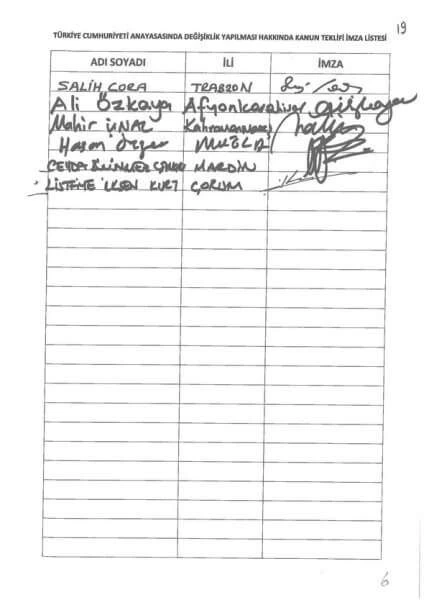 19
TÜRKİYE CUMHURİYETİ ANAYASASINDA DEĞİŞİKLİK YAPILMASI HAKKINDA KANUN TEKLİFİ İMZA LİSTESİ
ADI SOYADI İLİ İMZA
SALİH CORA TRABZON
Ali Özkaya Afyonkarahisar
Mahir ÜNAL Kahramanmaraş
Hasan Özyer MUĞLA
CEYDA ÇANKIRI MARDİN
KURT ÇORUM
6